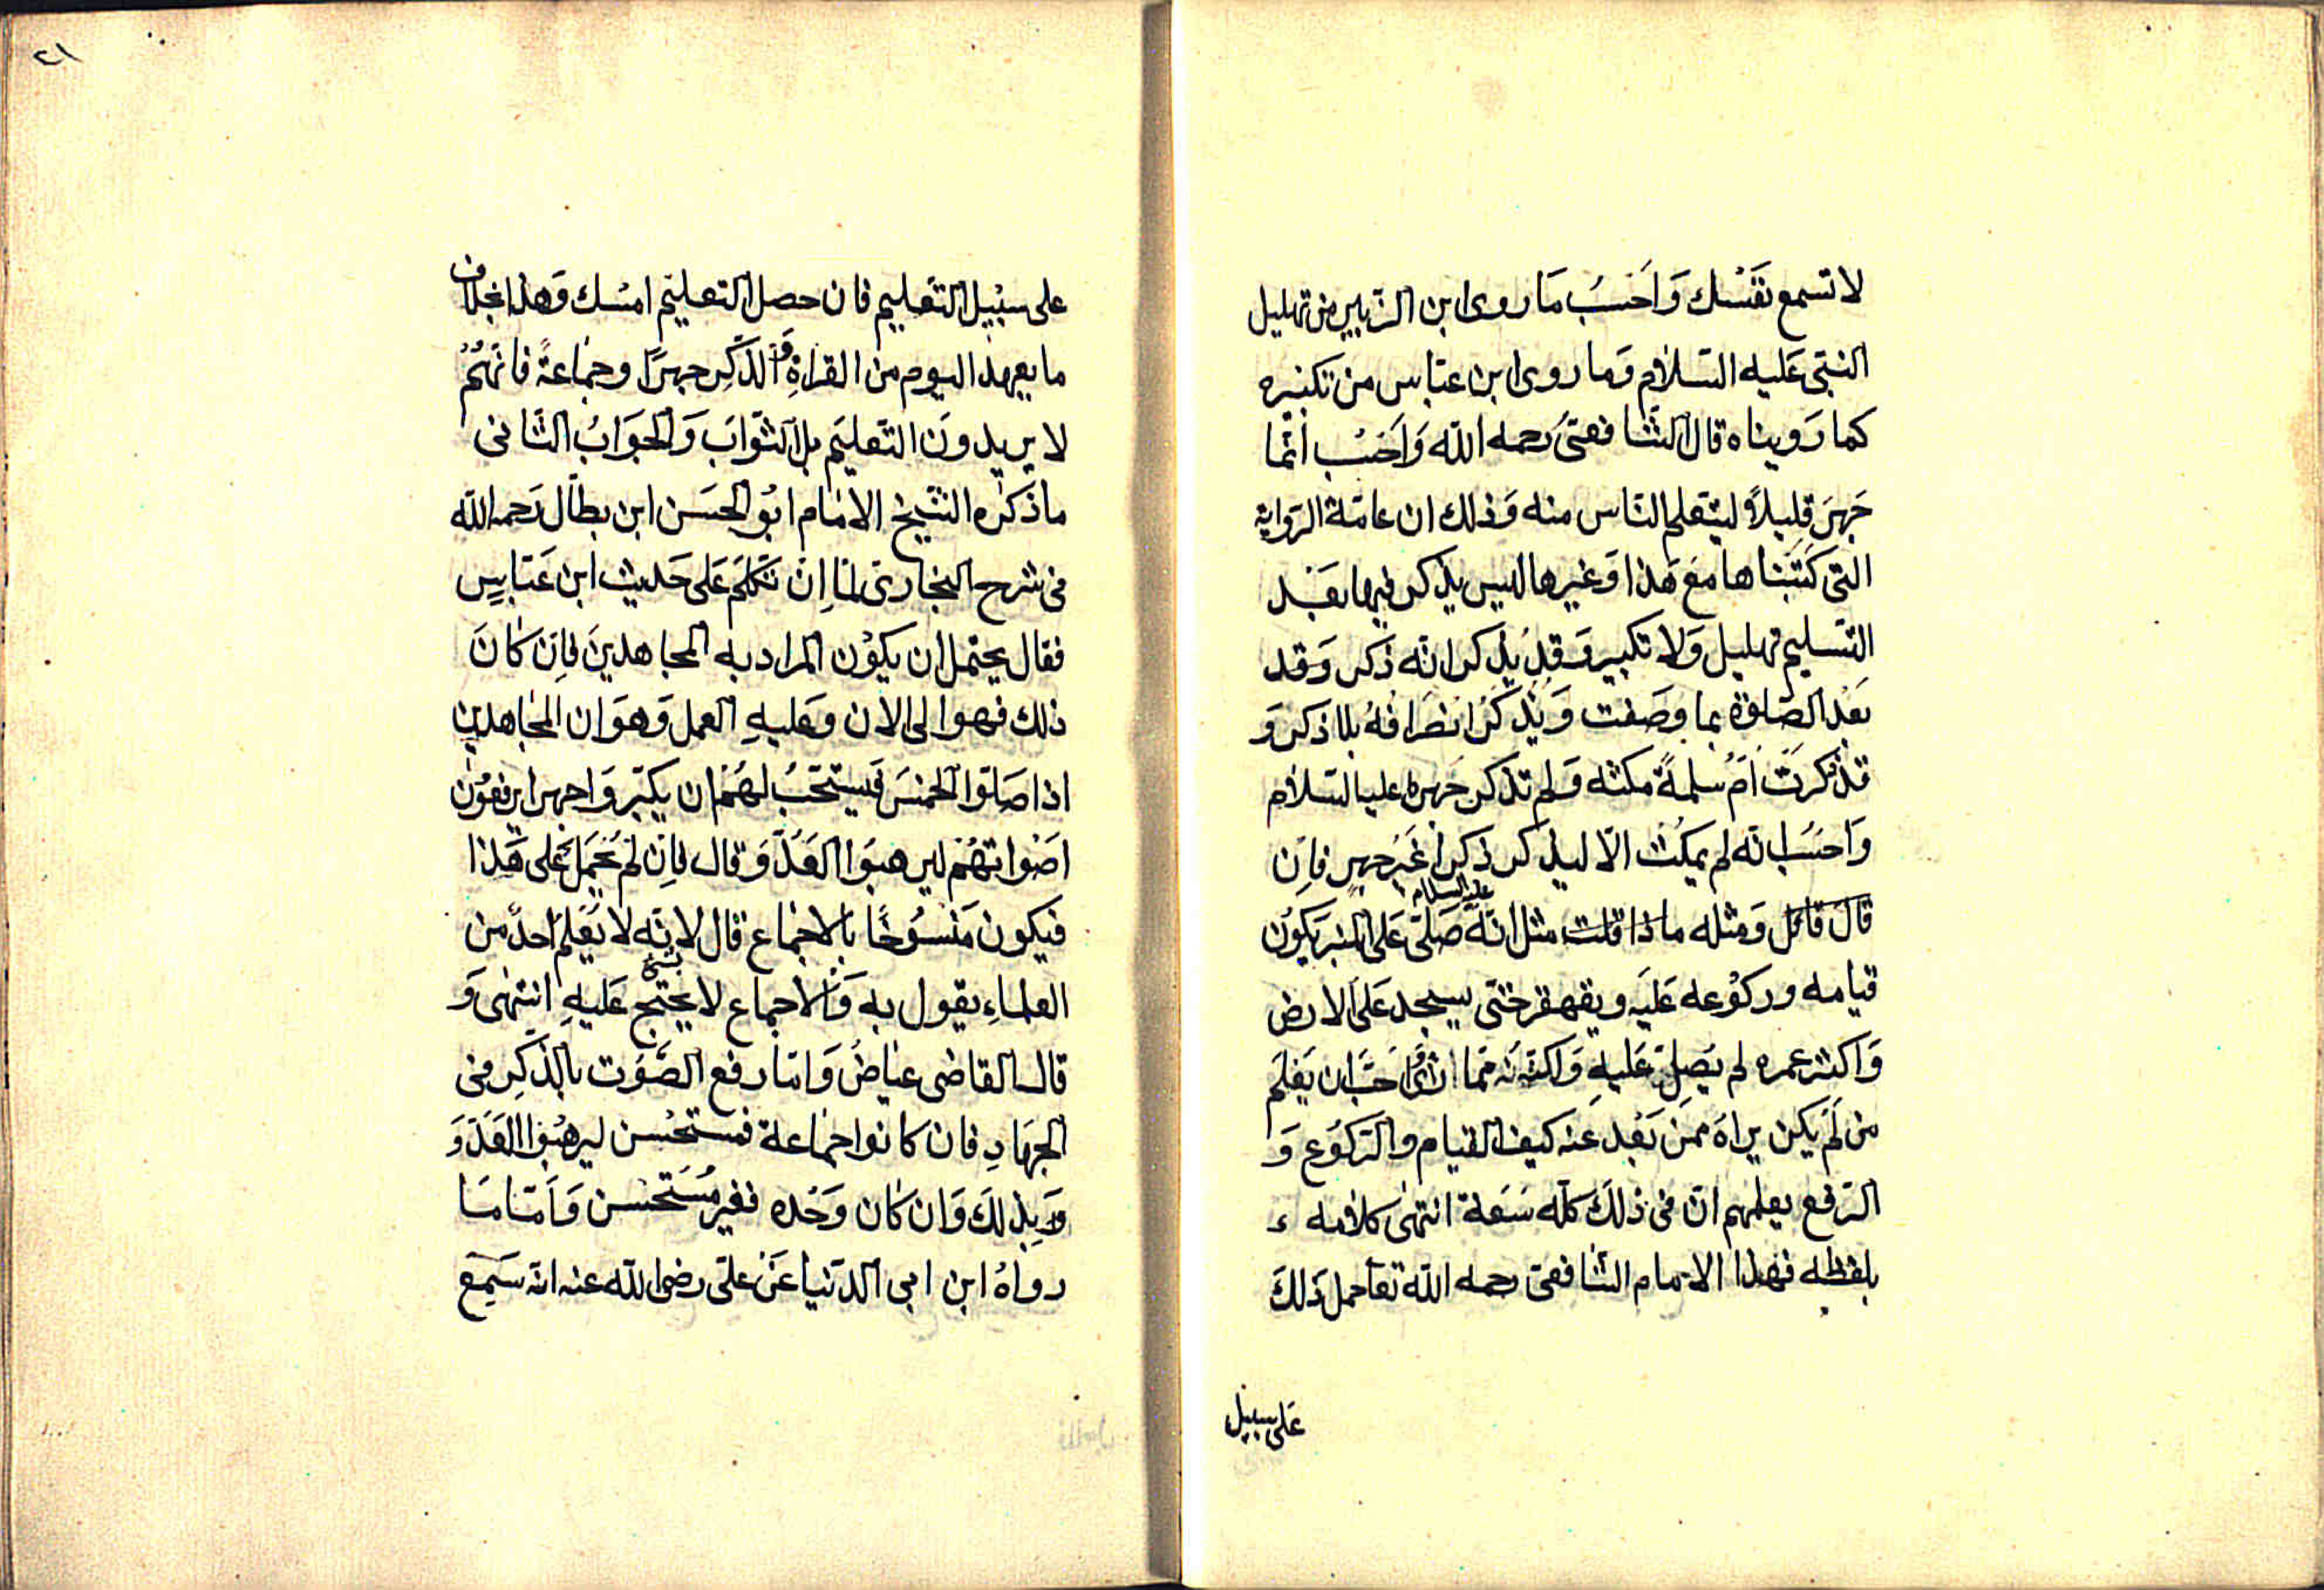 لا تسمع نفسك وَاَحسبُ مَا روى ابن الزبير من تهليل
النبي عَليه السّلام وَما روى ابن عبّاس من تكبيره
كما رَويناه قال الشّافعيّ رحمه الله وَاَحسبُ انّما
جَهَر قليلاً ليتعلم النّاس منه وَذلك ان عامّة الرّواية
التي كَتَبناها مَع هَذا وَغيرها ليس يذكر فيها بَعْد
التّسليم تهليل وَلا تكبير وَقد يُذكر انّه ذكر وَقد
بَعْد الصّلوة بما وصَفت وَيُذكَرُ انصَرافهُ بلا ذكر وَ
قد ذكرَت اُمّ سلمَة مكثه وَلم تذكر جَهره عليه السّلام
وَاَحسَبُ انّه لم يمكث الّا ليذكر ذكراً غَيْرَ جهر فاِن
قالَ قائل وَمثله ماذا قلت مثل انّه صَلّى عَلى المنبر يَكوُن
عليه السلام
قيامه وركوُعه عَليَه ويقهقر حتّى يسجد عَلى الارض
وَاكثر عمره لم يَصلّ عَليهِ وَلكنّه فيما ارى احَبّ ان يَعْلم
من لَم يكن يراهُ ممن بَعُد عَنه كيف القيام والرّكوُع وَ
الرّفع يعلمهم انّ في ذلكَ كلّه سَعَة انتهى كلامه
بلفظه فهذا الامام الشّافعيّ رحمه الله تعا حمل ذلكَ
على سبيل
٢١
على سبيل التعليم فان حصل التعليم امسك وَهذا بخلاف
ما يعهد اليوم من القراءةِ وَالذّكِر جهرًا وجمَاعةً فانّهُمْ
لا يريدونَ التّعليَم بل الثّوابَ وَالجوَابُ الثّاني
ما ذكرَه الشّيخ الامَام ابُو الحسَن ابن بطّال رَحمه الله
في شرح البخاريّ لمّا اِنْ تَكلّمَ عَلى حَديث ابن عَبّاسٍ
فقال يحتمل ان يكوُن المراد به المجاهدينَ فاِن كانَ
ذلك فهو الى الان وَعليهِ العمل وَهوَ ان المجاهدين
اذا صَلّوا الخمسَ فَيستحَبُّ لهُم ان يكبّروَا جهرا يرفعُون
اصْواتهُم ليرهبوَا العَدوّ وَقال فاِن لم يُحمَل عَلى هَذا
فيكون مَنسوُخًا بالاجمَاع قال لانّه لا نَعلم احدً من
العلماءِ يقول به وَالاجماع لا يحتج عَليهِ انتهى وَ
بشئ
قال القاضى عيَاضُ وَامّا رفع الصَّوْت بالذّكِر في
الجهَادِ فان كانوا جمَاعة فمستحسن ليرهبُوا العَدوّ
وَبِذلكَ وَان كان وَحْده فغير مُستَحسن وَاَمّا مَا
رواهُ ابن ابي الدّنيا عَن علىّ رضى الله عنه انّه سَمِعَ